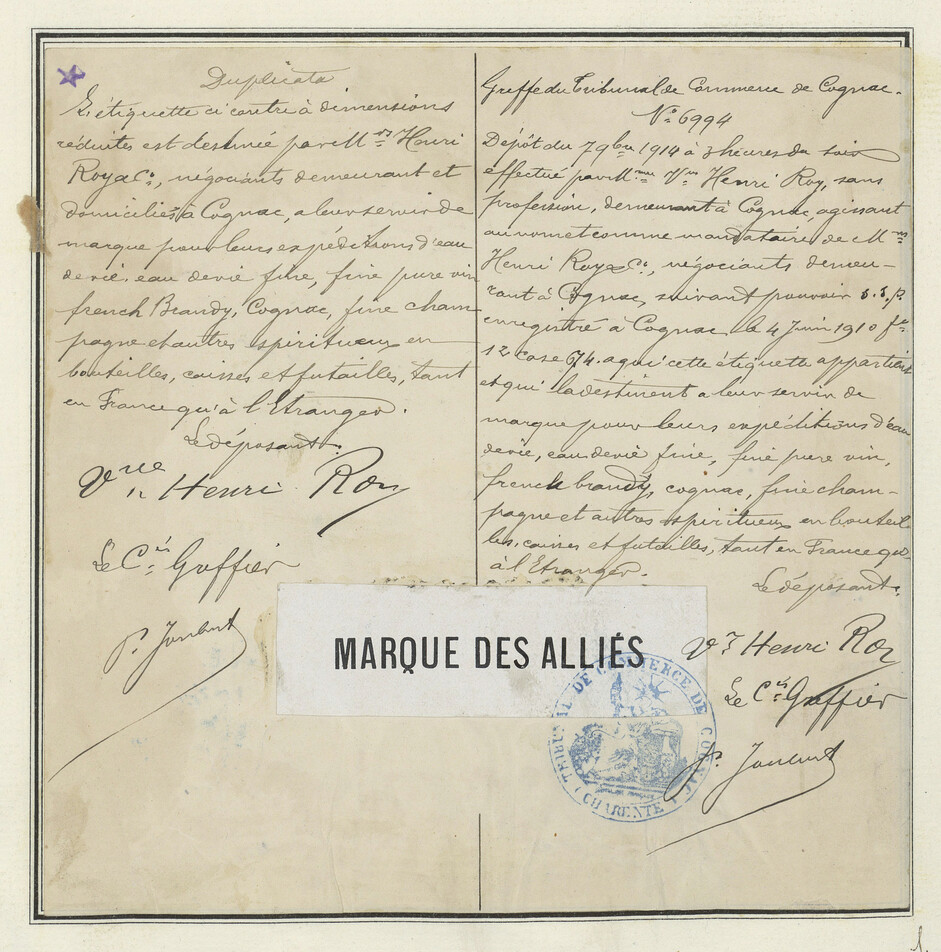 Duplicata
L'étiquette ci contre à dimensions
réduites est destinée par M.rs Henri
Roy & Co., négociants demeurant et
domiciliés à Cognac, a leur servir de
marque pour leurs expéditions d'eau
de vie, eau de vie fine, fine pure vin
french Brandy, Cognac, fine cham
pagne et autres spiritueux en
bouteilles, caisses et futailles, tant
en France qu'à l'Etranger.
Le déposant.
Vve Henri Roy
Le Cis Greffier
P. Joubert
Greffe du Tribunal de Commerce de Cognac.
No 6994
Dépôt du 7 9bre 1914 à 3 heures du soir
effectué par Mme Vve Henri Roy, sans
profession, demeurant à Cognac, agissant
au nom et comme mandataire de Mrs
Henri Roy & Co., négociants demeu-
rant à Cognac, suivant pouvoir s.s.p.
enregistré à Cognac le 4 Juin 1910 fo
12 case 674. a qui cette étiquette appartient
et qui la destinent a leur servir de
marque pour leurs expéditions d'eau
de vie, eau de vie fine, fine pure vin,
french brandy, cognac, fine cham-
pagne et autres spiritueux en bouteil
les, caisses et futailles, tant en France qu'
à l'Etranger.
Le déposant.
MARQUE DES ALLIÉS
Ve Henri Roy
Le Cis Greffier
P. Joubert
TRIBUNAL DE COMMERCE DE COGNAC
(CHARENTE)